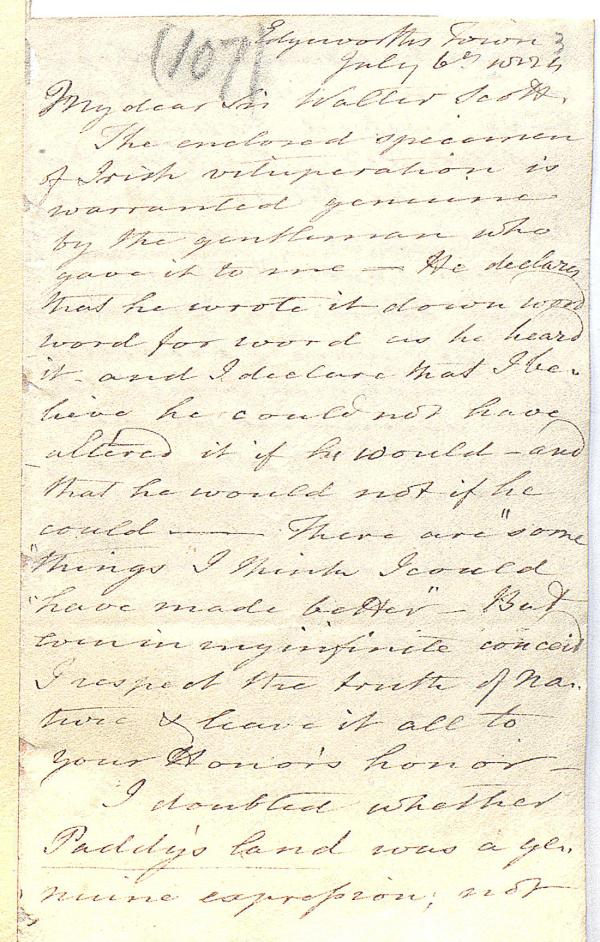 (107)
Edgeworths Town 3
July 6th
My dear Sir Walter Scott.
The enclosed specimen
of Irish vituperation is
warranted genuine
by the gentleman who
gave it to me — He declares
that he wrote it down word
word for word as he heard
it - and I declare that I be-
lieve he could not have
altered it if he would - and
that he would not if he
could —— There are "some
"things I think I could
"have made better" - But
even in my infinite conceit
I respect the truth of Na-
ture & leave it all to
your Honor's honor -
I doubted whether
Paddy's land was a ge-
nuine expression; not